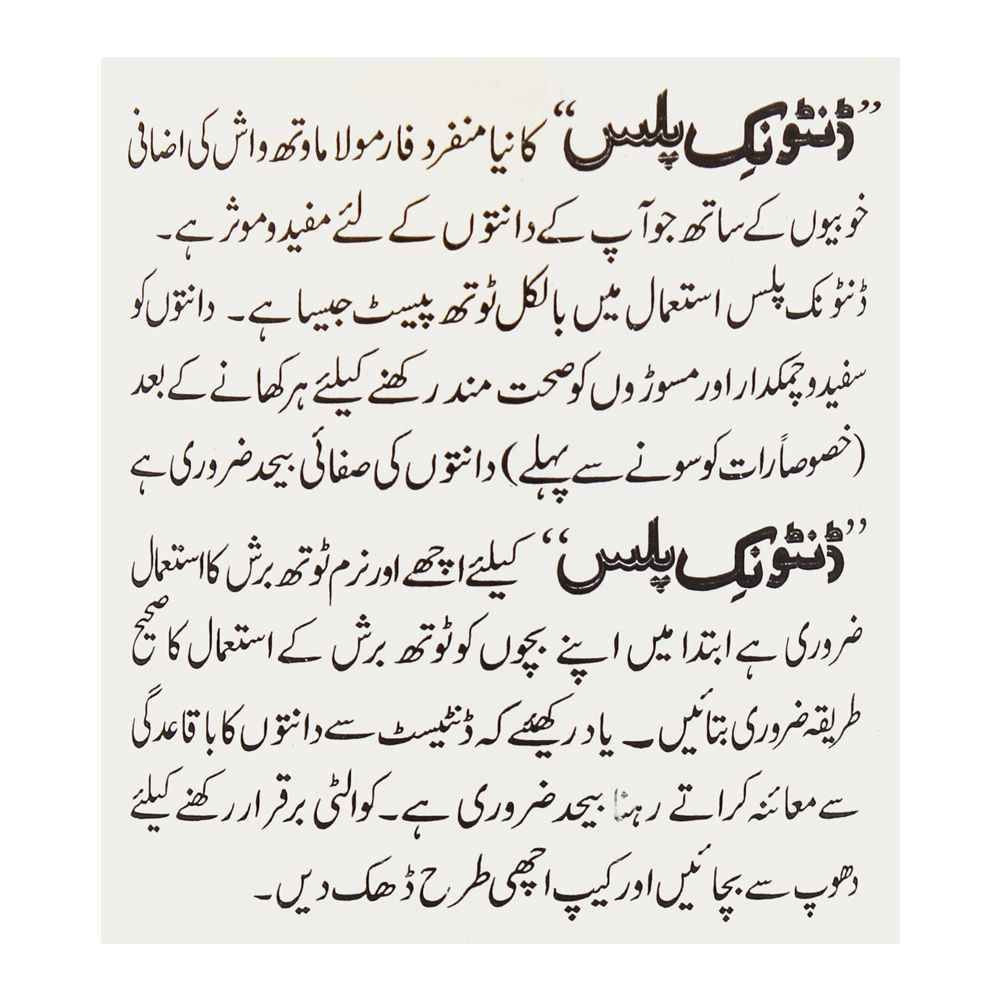 ”ڈنٹونک پلس“ کا نیا منفرد فارمولا ماوتھ واش کی اضافی
خوبیوں کے ساتھ جو آپ کے دانتوں کے لئے مفید و موثر ہے۔
ڈنٹونک پلس استعمال میں بالکل ٹوتھ پیسٹ جیسا ہے۔ دانتوں کو
سفید و چمکدار اور مسوڑوں کو صحت مند رکھنے کیلئے ہر کھانے کے بعد
(خصوصاً رات کو سونے سے پہلے) دانتوں کی صفائی بیحد ضروری ہے
”ڈنٹونک پلس“ کیلئے اچھے اور نرم ٹوتھ برش کا استعمال
ضروری ہے ابتدا میں اپنے بچوں کو ٹوتھ برش کے استعمال کا صحیح
طریقہ ضروری بتائیں۔ یاد رکھئے کہ ڈنٹیسٹ سے دانتوں کا باقاعدگی
سے معائنہ کراتے رہنا بیحد ضروری ہے۔ کوالٹی برقرار رکھنے کیلئے
دھوپ سے بچائیں اور کیپ اچھی طرح ڈھک دیں۔